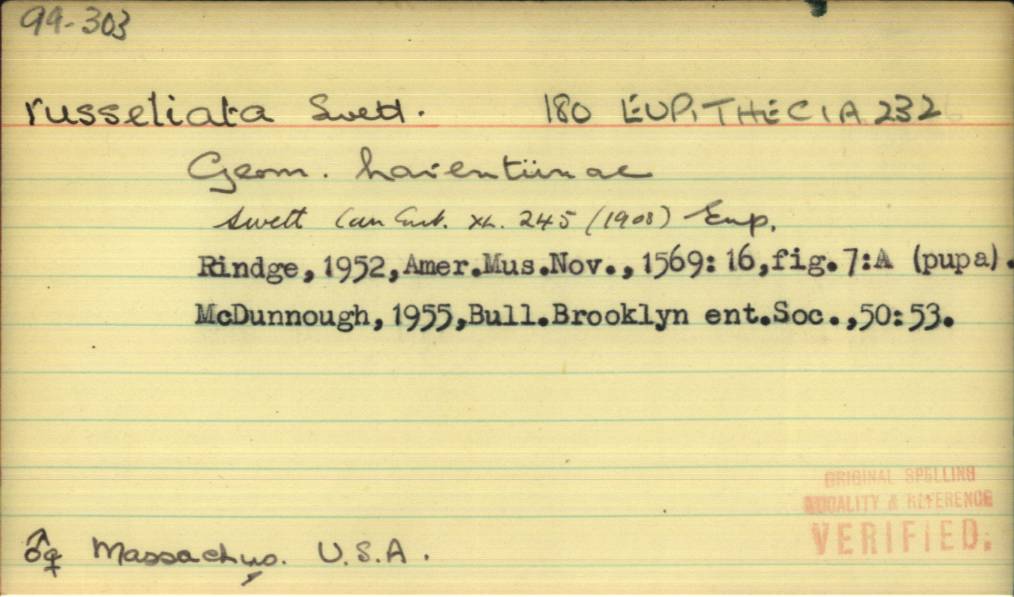 99-303
russeliata Swett. 180 EUPITHECIA 232
Geom. larentiinae
Swett Can Ent. XL. 245 (1908) Eup.
Rindge,1952,Amer.Mus.Nov.,1569:16,fig.7:A (pupa).
McDunnough,1955,Bull.Brooklyn ent.Soc.,50:53.
ORIGINAL SPELLING
LOCALITY & REFERENCE
VERIFIED.
♂♀ Massachus. U.S.A.